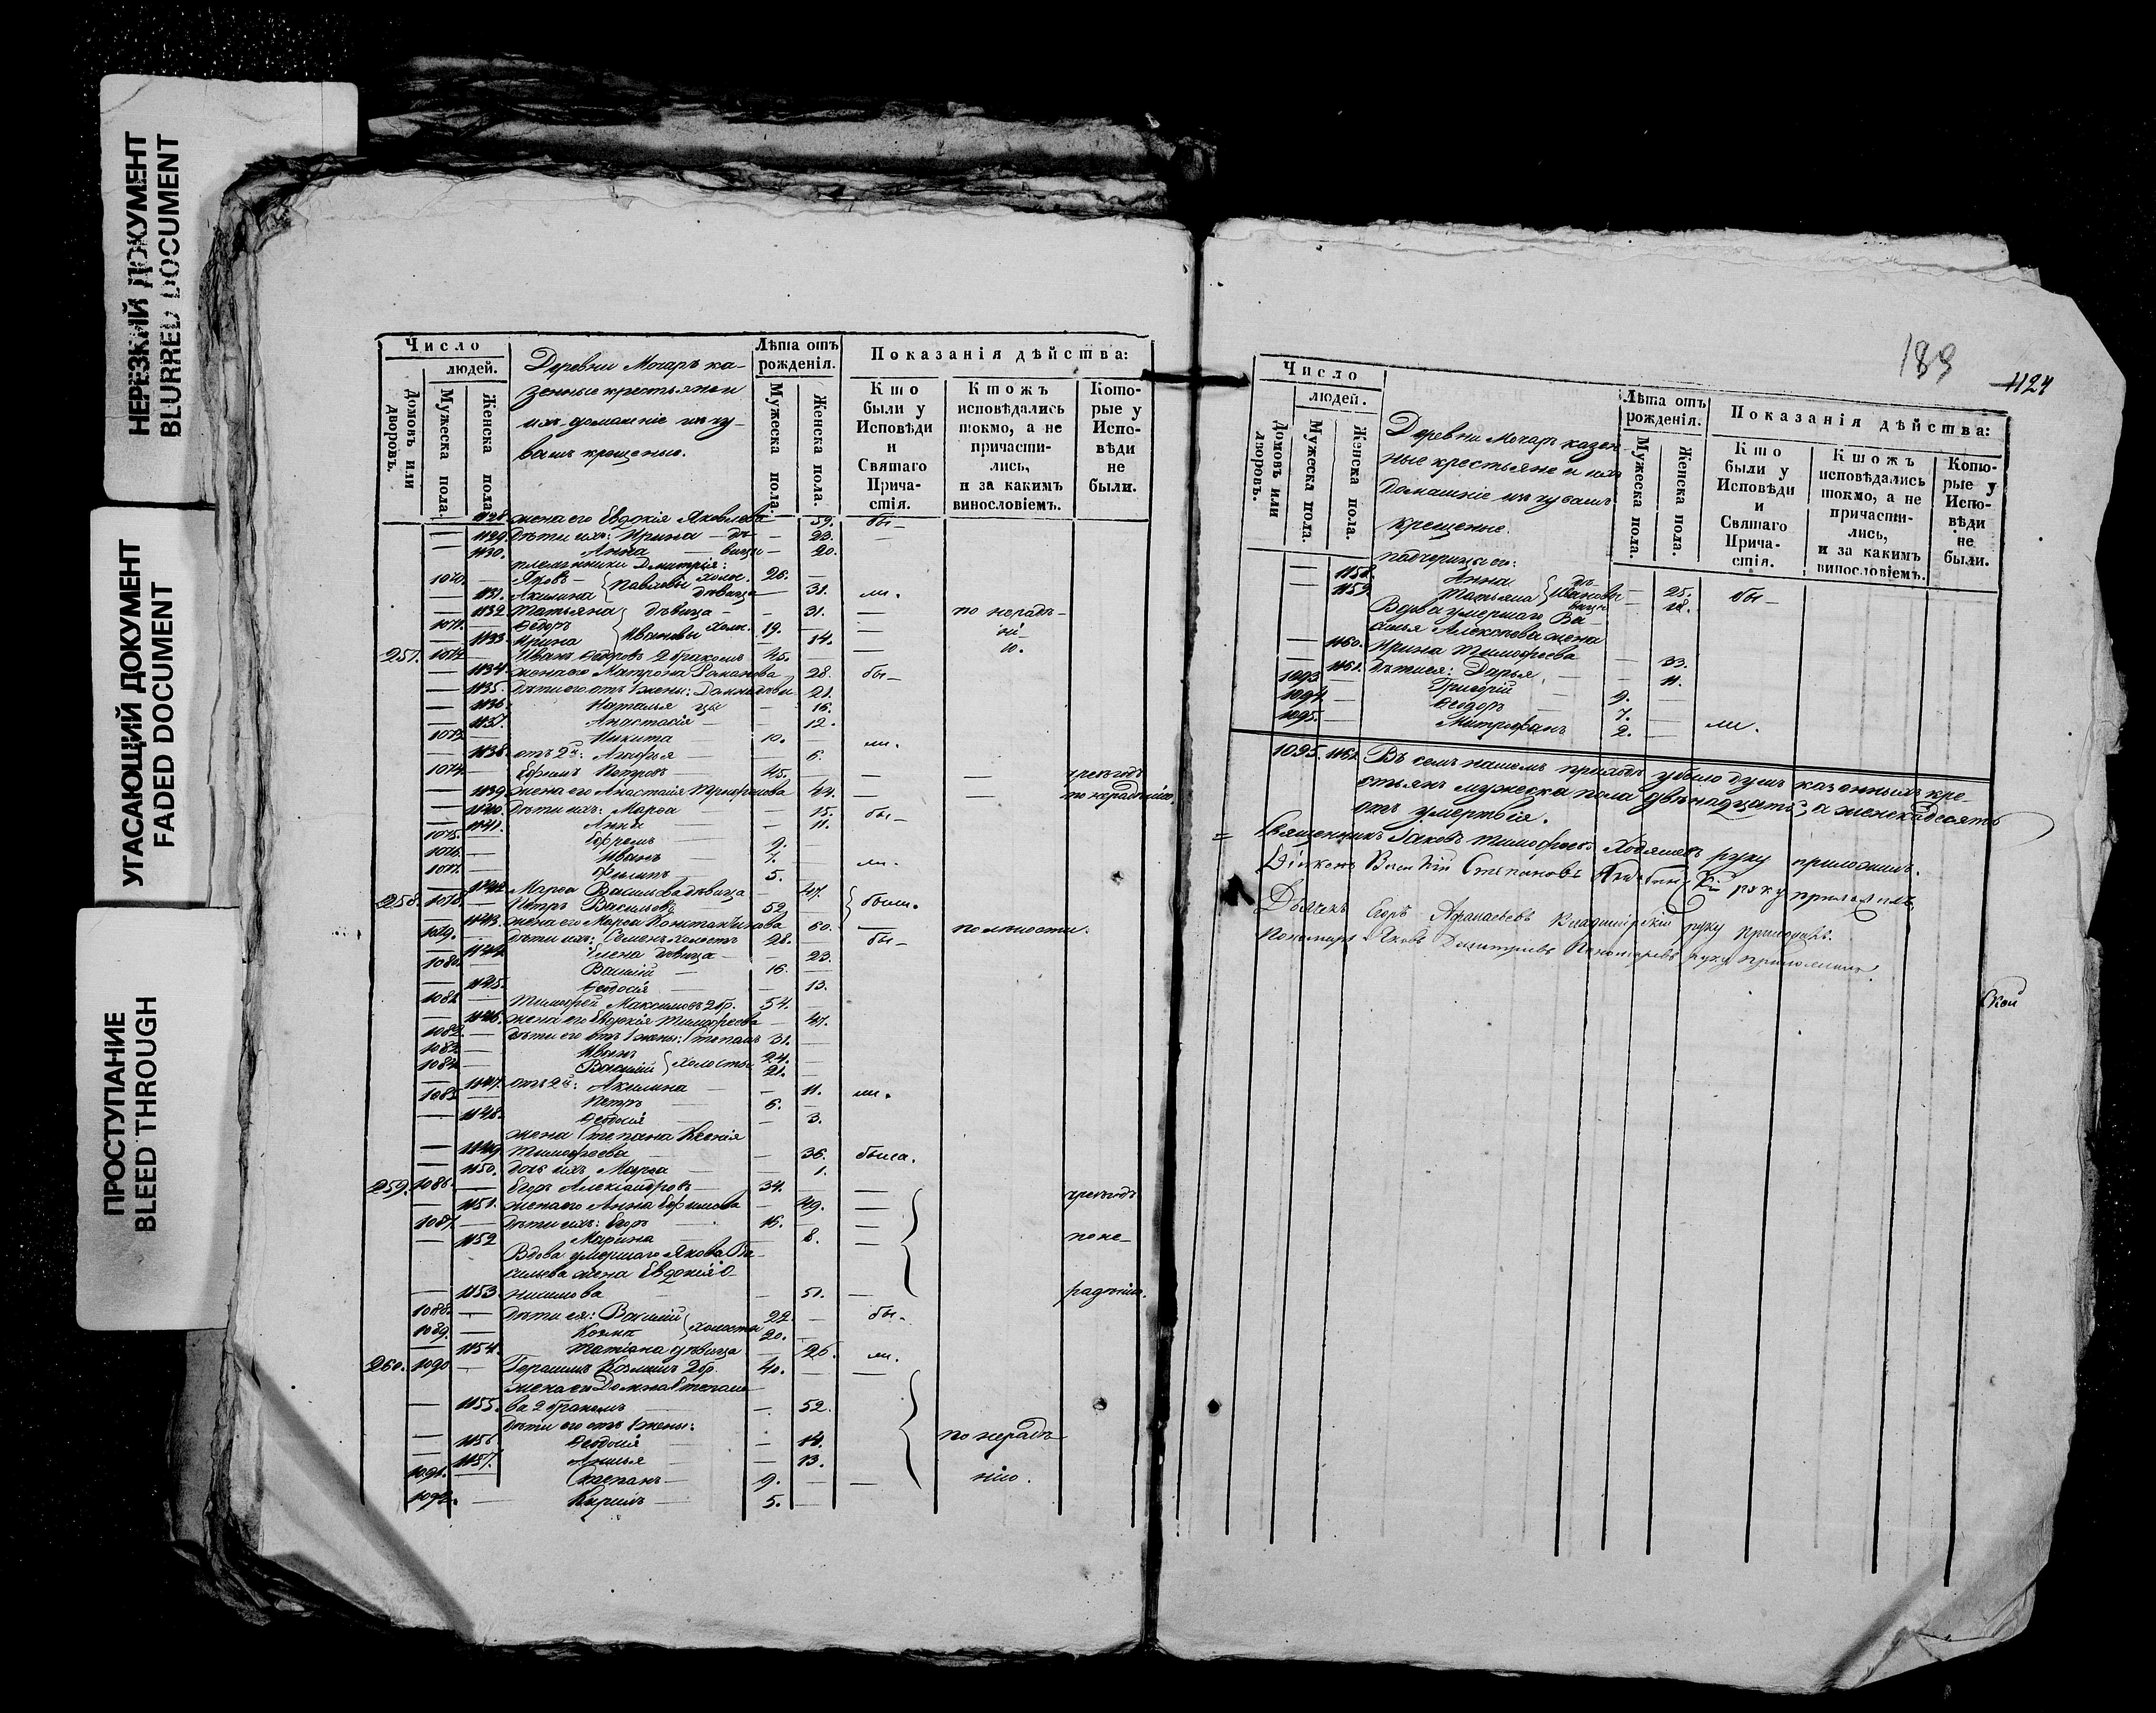 НЕРЕЗКИЙ ДОКУМЕНТ
BLURRED DOCUMENT
УГАСАЮЩИЙ ДОКУМЕНТ
FADED DOCUMENT
ПРОСТУПАНИЕ
BLEED THROUGH
Число
людей.
Домовъ или дворовъ.
Мужеска пола.
Женска пола.
Деревни Мочаръ ка-
зенные крестьяне и
ихъ домашніе изъ чу-
вашъ крещеные.
Лѣта отъ рожденія.
Мужеска пола.
Женска пола.
Показанія дѣйства:
Кто были у Исповѣди и Святаго Прича-стія.
Ктожъ исповѣдались токмо, а не причасти-лись, и за какимъ винословіемъ.
Кото-рые у Испо-вѣди не были.
— 1128. жена его Евдокія Яковлева — 59. бы-
— 1129. Дѣти ихъ: Ирина — дѣ- — 23. —
— 1130. Анна — вицы — 20.
племянники Дмитрія:
1070. — Яковъ — Павловы холос. 26. —
— 1131. Акилина дѣвица — 31. ли.
— 1132. Татьяна дѣвица — — 31. — по нерадѣ-
1071. — Ѳедоръ Ивановы холос. 19. — — ні-
— 1133. Ирина — 14. — ю.
257. 1072. — Иванъ Ѳедоровъ 2 бракомъ 45. — —
— 1134. жена его Матрона — 28. бы-
— 1135. Дѣти его отъ 1 жены: Домна дѣви- 21.
— 1136. Наталья цы — 16.
— 1137. Анастасія — — 12.
1073. — Никита — 10. —
— 1138. отъ 2й: Агафья — — 6. ли.
1074. — Ефимъ Петровъ — 45. — — — чрезъ годъ
— 1139. жена его Анастасія 44. — — по нерадѣнію.
— 1140. Дѣти ихъ: Марѳа — — 15. бы-
— 1141. Анна — — 11.
1075. — Ефремъ — 9. —
1076. — Иванъ — 7. — ли.
1077. — Филипъ — 5. —
— 1142. Марѳа Васильева дѣвица — 47.
258. 1078. — Петръ Васильевъ 52. — были.
— 1143. жена его Марѳа Константинова 60. — по лѣности.
1079. — Дѣти ихъ: Семенъ холостъ 28. — бы-
— 1144. Елена дѣвица — — 23.
1080. — Василій — 16. —
— 1145. Ѳеодосія — — 13.
1081. — Тимофей Максимовъ 2 бр. 54. —
— 1146. жена его Евдокія Тимофеева — 47.
1082. — Дѣти его отъ 1 жены: Степанъ 31. —
1083. — Иванъ холосты 24. —
1084. — Василій 21. —
— 1147. отъ 2й: Акилина — — 11. ли.
1085. — Петръ — 6. —
— 1148. Ѳеодосія — — 3.
жена Степана Ксенія
— 1149. Тимофеева — — 36. была.
— 1150. дочь ихъ Марѳа — — 1.
259. 1086. — Егоръ Александровъ — 34. — —
— 1151. жена его Анна Ефимова — 49. — чрезъ годъ
1087. — Дѣти ихъ: Егоръ — 15. — —
— 1152 Марина — — 8. — по не-
Вдова умершаго Якова Ва-
сильева жена Евдокія О-
— 1153 нисимова — — 51. — радѣнію.
1088. — Дѣти ея: Василій холосты 22. — бы-
1089. — Козма 20. —
— 1154. Татіана дѣвица — 26. ли.
260. 1090. — Герасимъ Козминъ 2 бр. 40. — —
жена его Домна Степано-
— 1155. ва 2 бракомъ — — 52.
Дѣти его отъ 1 жены:
— 1156 Ѳеодосія — — 14. по нерадѣ-
— 1157. — — 13.
1091. — Степанъ — 9. — — нію.
1092. — Кирилъ — 5. —
189
1124
Число
людей.
Домовъ или дворовъ.
Мужеска пола.
Женска пола.
Деревни Мочаръ казен-
ные крестьяне и ихъ
домашніе изъ чувашъ
крещеные.
Лѣта отъ рожденія.
Мужеска пола.
Женска пола.
Показанія дѣйства:
Кто были у Исповѣди и Святаго Прича-стія.
Ктожъ исповѣдались токмо, а не причасти-лись, и за какимъ винословіемъ.
Кото-рые у Испо-вѣди не были.
падчерицы его:
— 1158. Анна дѣ- — 25. бы-
— 1159. Татьяна Ивановы вицы — 18.
Вдова умершаго Ва-
силья Алексѣева жена
— 1160. Ирина Тимофеева — 33.
— 1161. Дѣти ея: Дарья — — 11.
1093 — Григорій — 9. —
1094. — Ѳеодоръ — 7. —
1095. — Митрофанъ 2. — ли.
1095. 1161. Въ семъ нашемъ приходѣ убыло душъ казенныхъ кре-
стьянъ мужеска пола двѣнадцать, а женска десять
отъ умертвія.
Священникъ Іаковъ Тимофеевъ руку приложилъ.
Діаконъ Василій Степановъ руку приложилъ.
Дьячекъ Егоръ Афанасьевъ Владимірскій руку приложилъ.
Пономарь Яковъ Димитріевъ Пономаревъ руку приложилъ.
ской